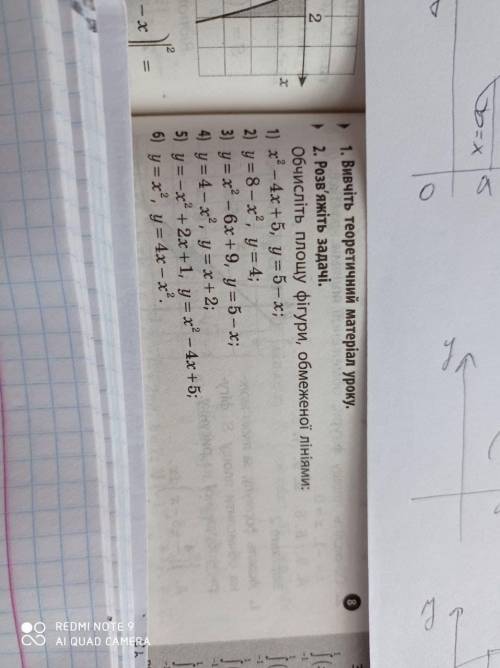 1. Вивчіть теоретичний матеріал уроку.
8
2. Розв'яжіть задачі.
Обчисліть площу фігури, обмеженої лініями:
1) x² − 4x + 5, y = 5 − x;
2) y = 8 − x², y = 4;
3) y = x² − 6x + 9, y = 5 − x;
4) y = 4 − x², y = x + 2;
5) y = −x² + 2x + 1, y = x² − 4x + 5;
6) y = x², y = 4x − x².
2
x
− x)|² =
0
5
y
y
REDMI NOTE 9
AI QUAD CAMERA